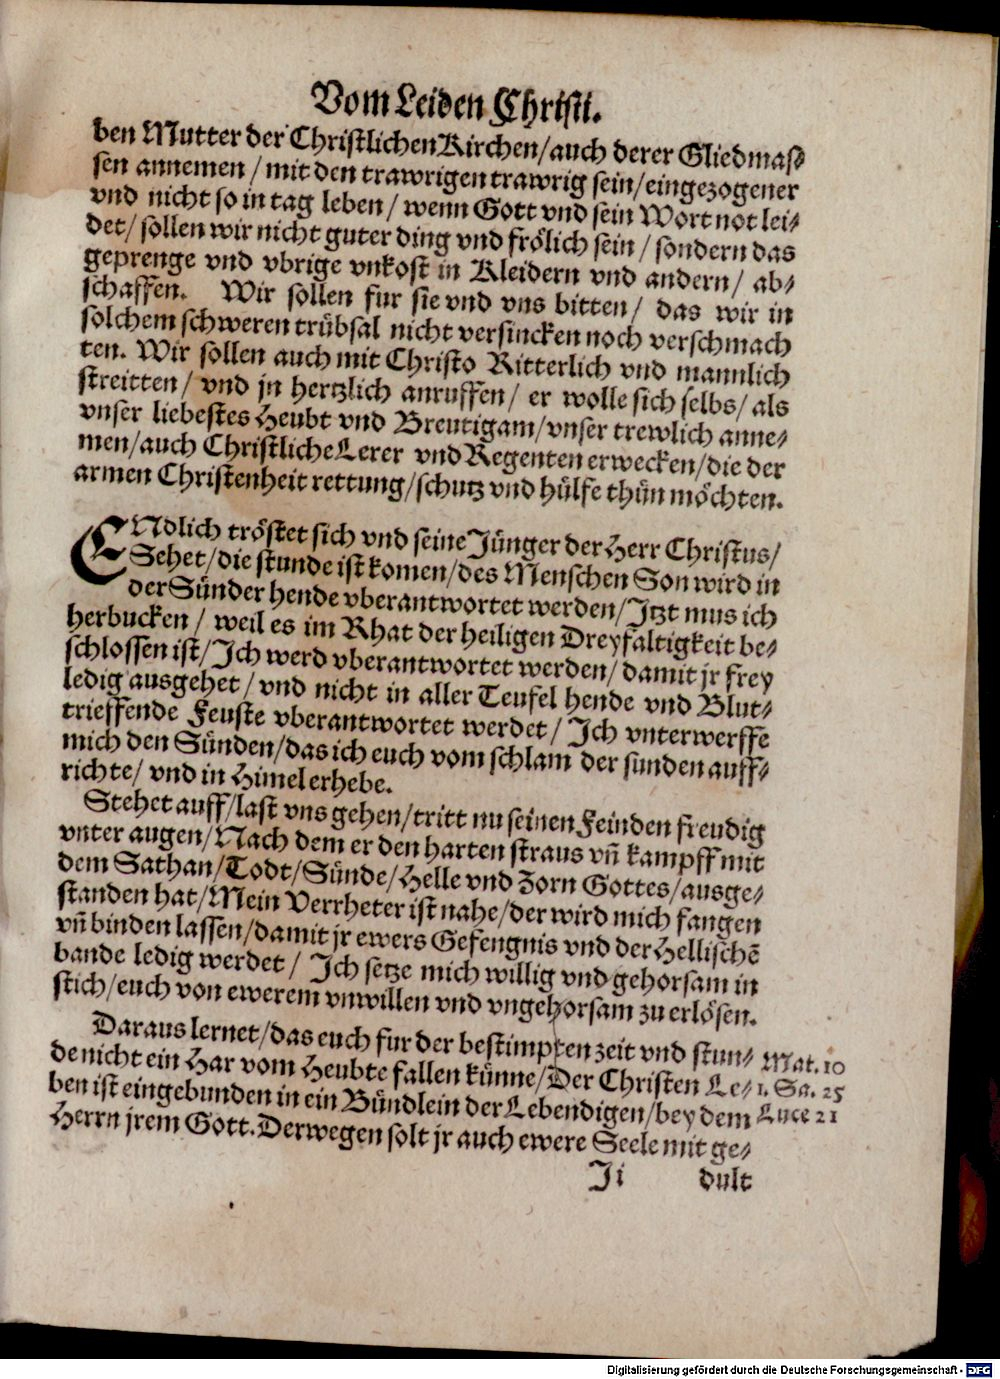 Vom Leiden Christi.
ben Mutter der Christlichen Kirchen/auch derer Gliedmas⸗
sen annemen / mit den trawrigen trawrig sein/eingezogener
vnd nicht so in tag leben/ wenn Gott vnd sein Wort not lei⸗
det/ sollen wir nicht guter ding vnd frölich sein / sondern das
geprenge vnd vbrige vnkost in Kleidern vnd andern/ ab⸗
schaffen. Wir sollen fur sie vnd vns bitten/ das wir in
solchem schweren trübsal nicht versincken noch verschmach
ten. Wir sollen auch mit Christo Ritterlich vnd mannlich
streitten/ vnd jn hertzlich anruffen/ er wolle sich selbs/ als
vnser liebestes Heubt vnd Breutigam/vnser trewlich anne⸗
men/auch Christliche Lerer vnd Regenten erwecken/die der
armen Christenheit rettung/schutz vnd hülfe thün möchten.
ENdlich tröstet sich vnd seine Jünger der Herr Christus/
Sehet/die stunde ist komen/des Menschen Son wird in
der Sünder hende vberantwortet werden/Itzt mus ich
herbucken / weil es im Rhat der heiligen Dreyfaltigkeit be⸗
schlossen ist/Ich werd vberantwortet werden/ damit jr frey
ledig ausgehet/ vnd nicht in aller Teufel hende vnd Blut⸗
trieffende Feuste vberantwortet werdet/ Ich vnterwerffe
mich den Sünden/das ich euch vom schlam der sunden auff⸗
richte/ vnd in Himel erhebe.
Stehet auff/last vns gehen/tritt nu seinen Feinden freudig
vnter augen/Nach dem er den harten straus vñ kampff mit
dem Sathan/Todt/Sünde/Helle vnd Zorn Gottes/ausge⸗
standen hat/Mein Verrheter ist nahe/der wird mich fangen
vñ binden lassen/damit jr ewers Gefengnis vnd der Hellischẽ
bande ledig werdet/ Ich setze mich willig vnd gehorsam in
stich/euch von ewerem vnwillen vnd vngehorsam zu erlösen.
Daraus lernet/das euch fur der bestimpten zeit vnd stun⸗ Mat. 10
de nicht ein Har vom Heubte fallen künne/Der Christen Le⸗ 1. Sa. 25
ben ist eingebunden in ein Bündlein der Lebendigen/bey dem Luce 21
Herrn jrem Gott. Derwegen solt jr auch ewere Seele mit ge⸗
Ii dult
Digitalisierung gefördert durch die Deutsche Forschungsgemeinschaft - DFG